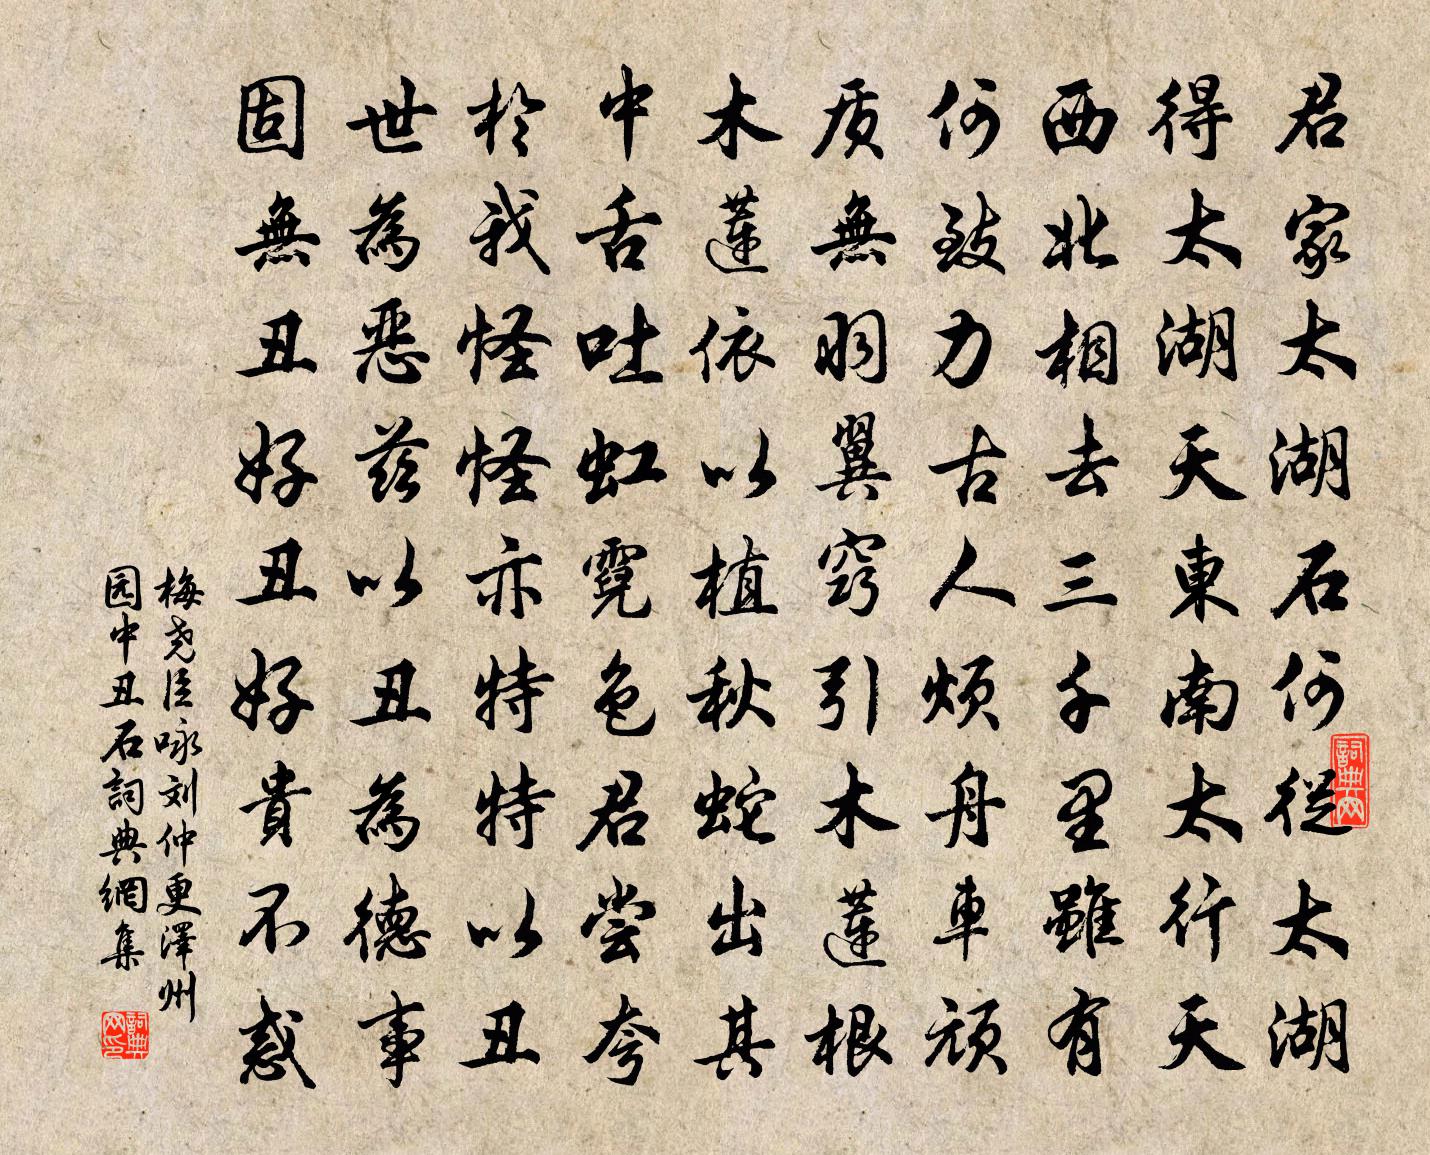 君家太湖石何從太湖
得太湖天東南太行天
西北相去三千里雖有
何致力古人煩舟車頑
质無羽翼窍引木蓮根
木蓮依以植秋蛇出其
中舌吐虹霓色君尝夸
於我怪怪亦特特以丑
世為惡兹以丑為德事
固無丑好丑好貴不惑
梅尧臣咏刘仲更澤州
园中丑石詞典網集
詞典网
詞典网印